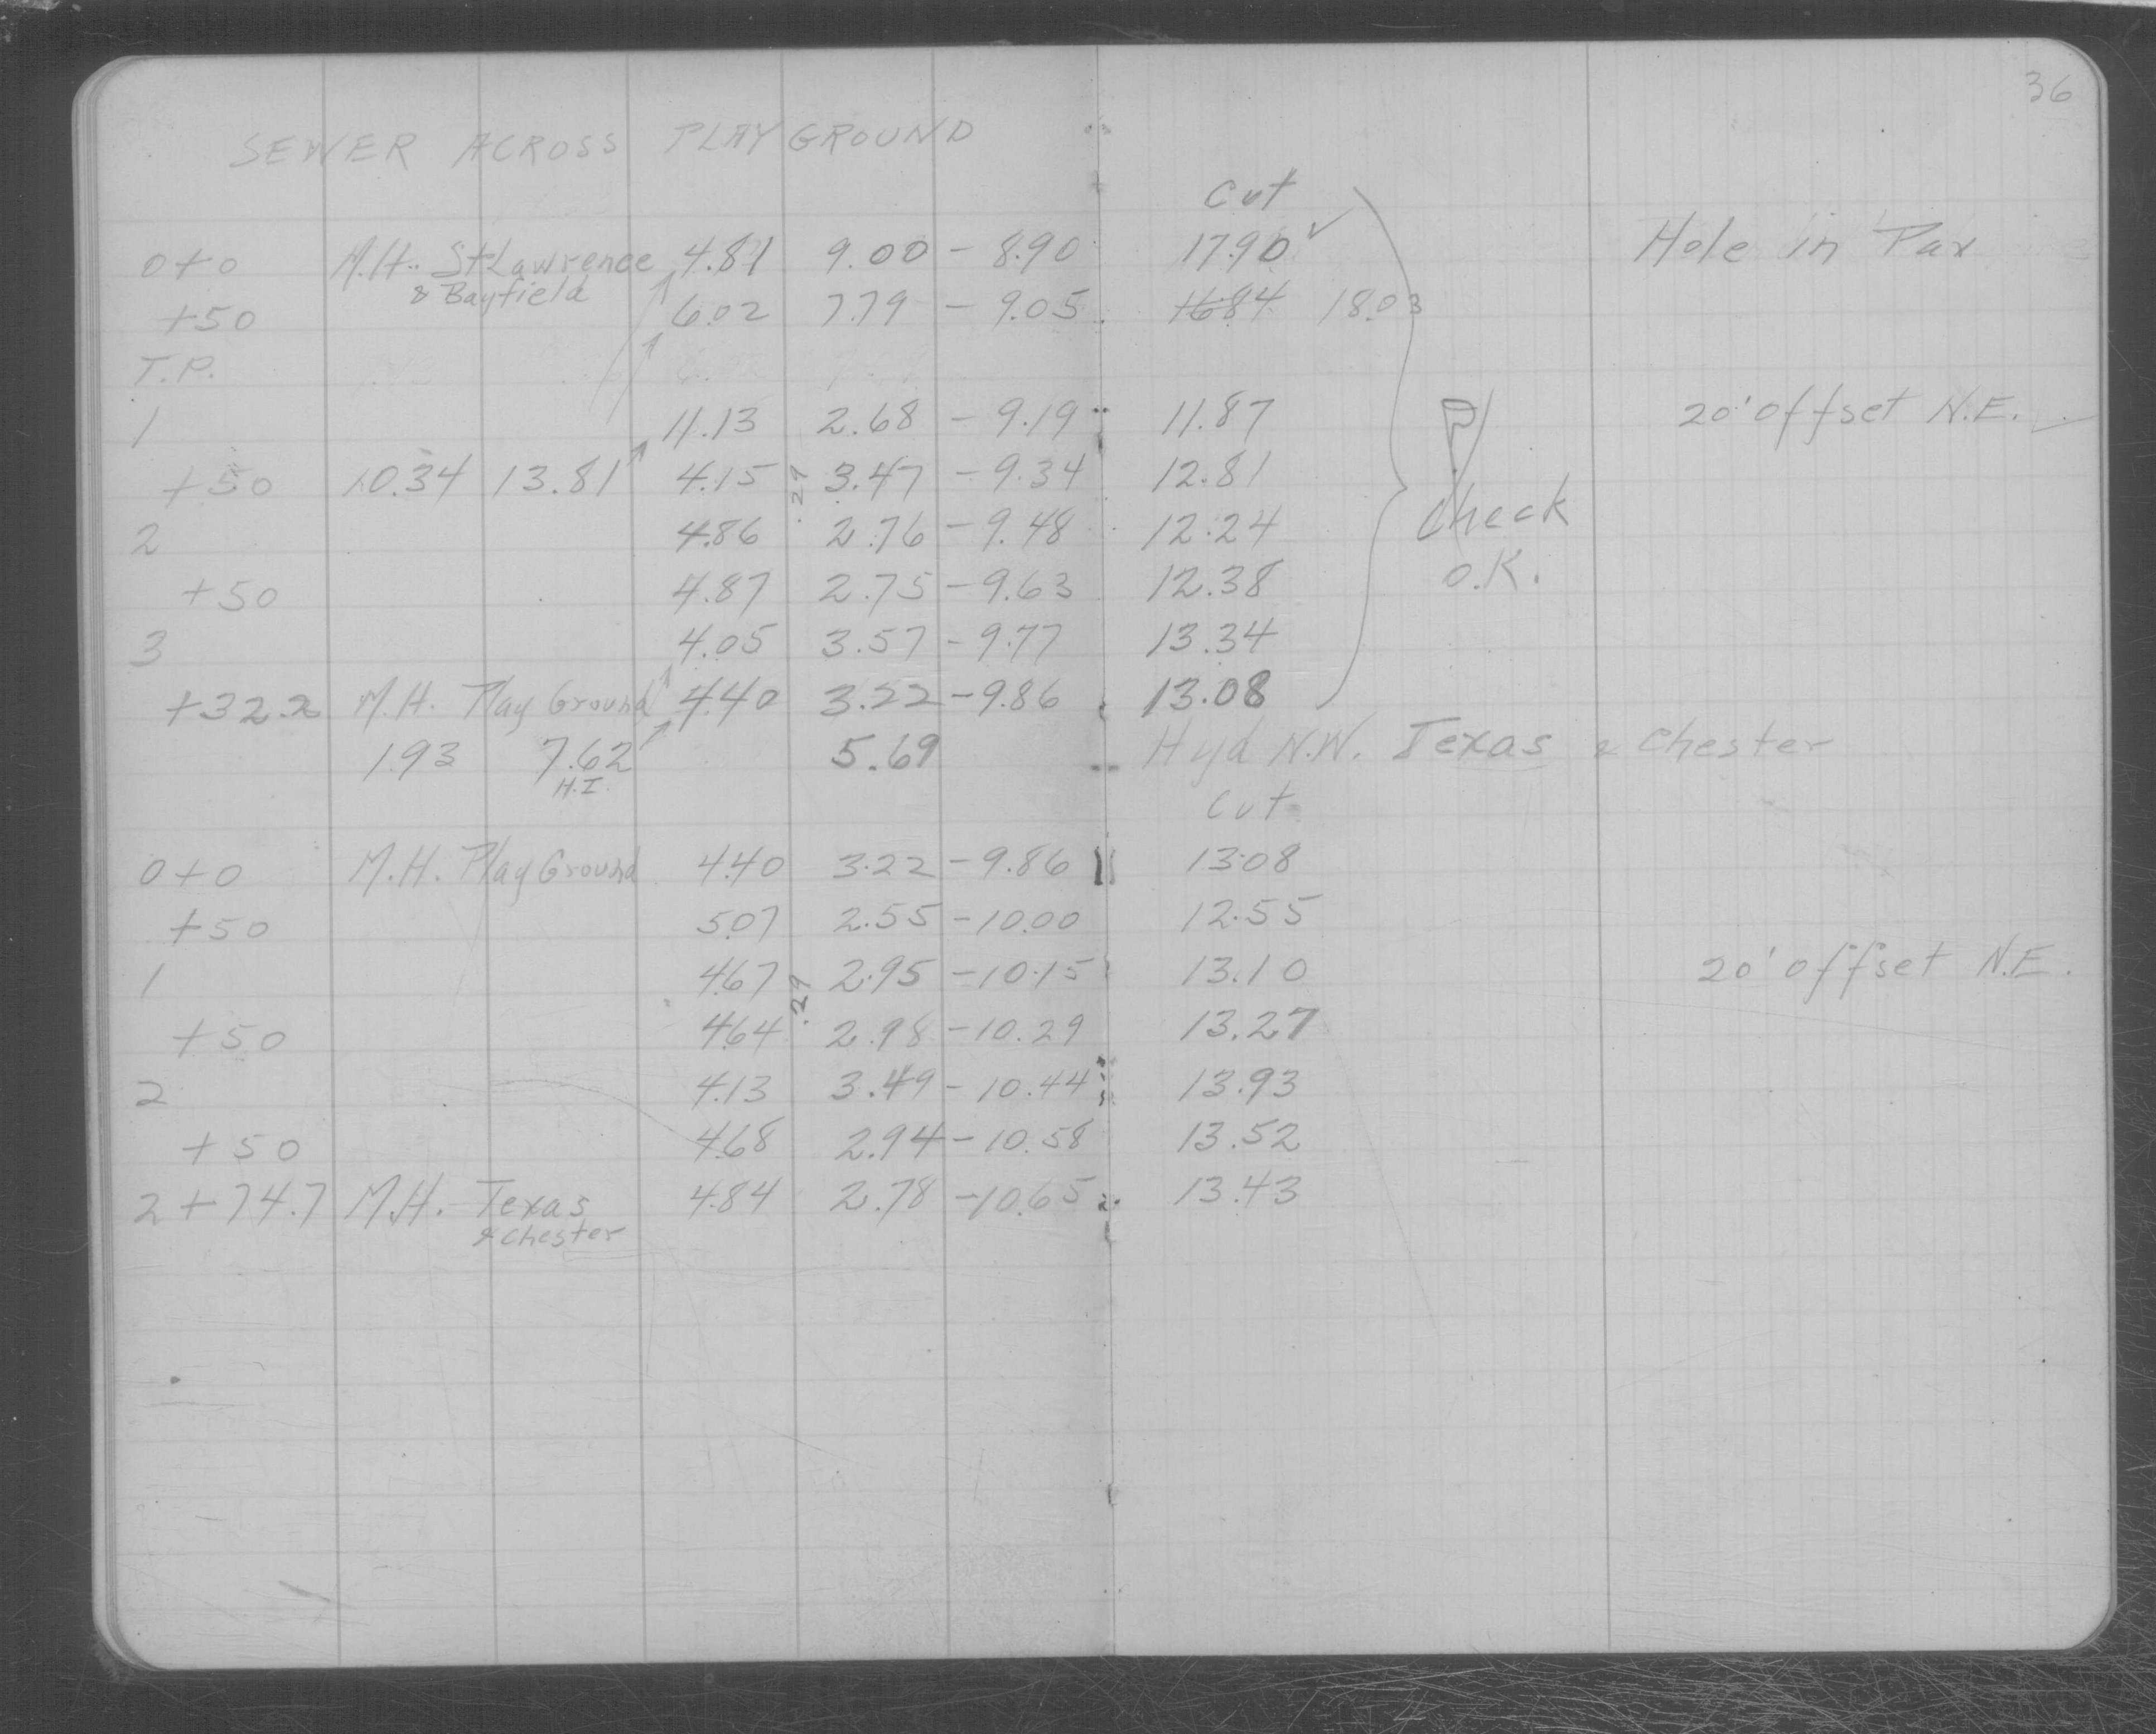 36
SEWER ACROSS PLAY GROUND
Cut
0+0 M.H. St Lawrence 4.81 9.00 - 8.90 17.90 ✓ Hole in Pav
& Bayfield
+50 6.02 7.79 - 9.05 1684 18.03
T.P.
1 11.13 2.68 - 9.19 11.87 20' offset N.E.
+50 10.34 13.81 4.15 .29 3.47 - 9.34 12.81
2 4.86 2.76 - 9.48 12.24 Check
+50 4.87 2.75 - 9.63 12.38 O.K.
3 4.05 3.57 - 9.77 13.34
+32.2 M.H. Play Ground 4.40 3.22 - 9.86 13.08
1.93 7.62 5.69 Hyd N.W. Texas & Chester
H.I.
Cut
0+0 M.H. Play Ground 4.40 3.22 - 9.86 13.08
+50 5.07 2.55 - 10.00 12.55
1 4.67 2.95 - 10.15 13.10 20' offset N.E.
+50 4.64 .29 2.98 - 10.29 13.27
2 4.13 3.49 - 10.44 13.93
+50 4.68 2.94 - 10.58 13.52
2+74.7 M.H. Texas 4.84 2.78 - 10.65 13.43
& Chester